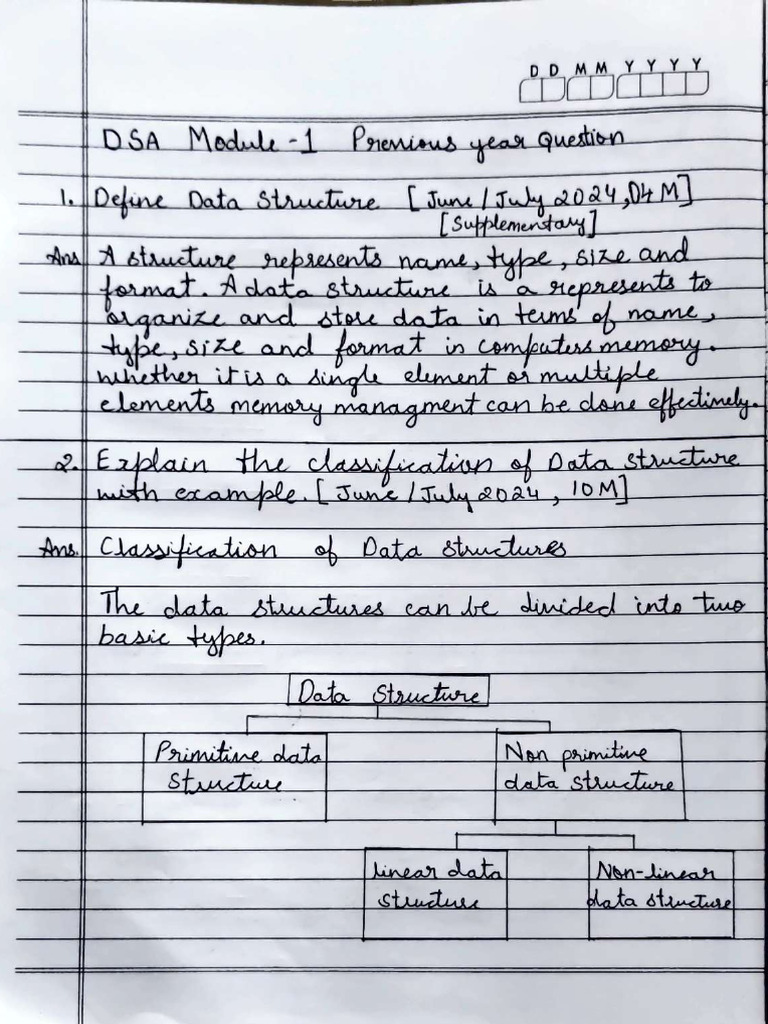 D D M M Y Y Y Y
DSA Module -1 Previous year Question
1. Define Data Structure [June/July 2024, 04 M]
[Supplementary]
Ans A structure represents name, type, size and
format. A data structure is a represents to
organize and store data in terms of name,
type, size and format in computers memory.
Whether it is a single element or multiple
elements memory managment can be done effectively.
2. Explain the classification of Data Structure
with example. [June/July 2024, 10M]
Ans. Classification of Data Structures
The data structures can be divided into two
basic types.
Data Structure
Primitive data
Structure
Non primitive
data structure
linear data
structure
Non-linear
data structure